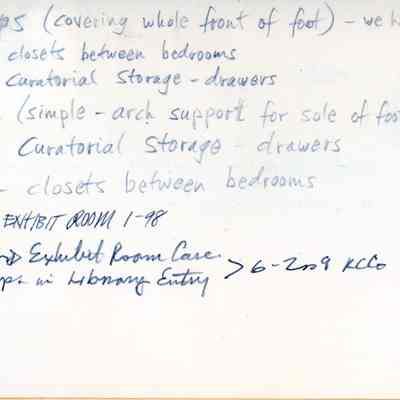 ps (covering whole front of foot) - we h
closets between bedrooms
Curatorial Storage - drawers
(simple - arch support for sole of foo
Curatorial Storage - drawers
- closets between bedrooms
EXHIBIT ROOM 1-98
Exhibit Room Case
ps in Library Entry > 6-2009 KCCo